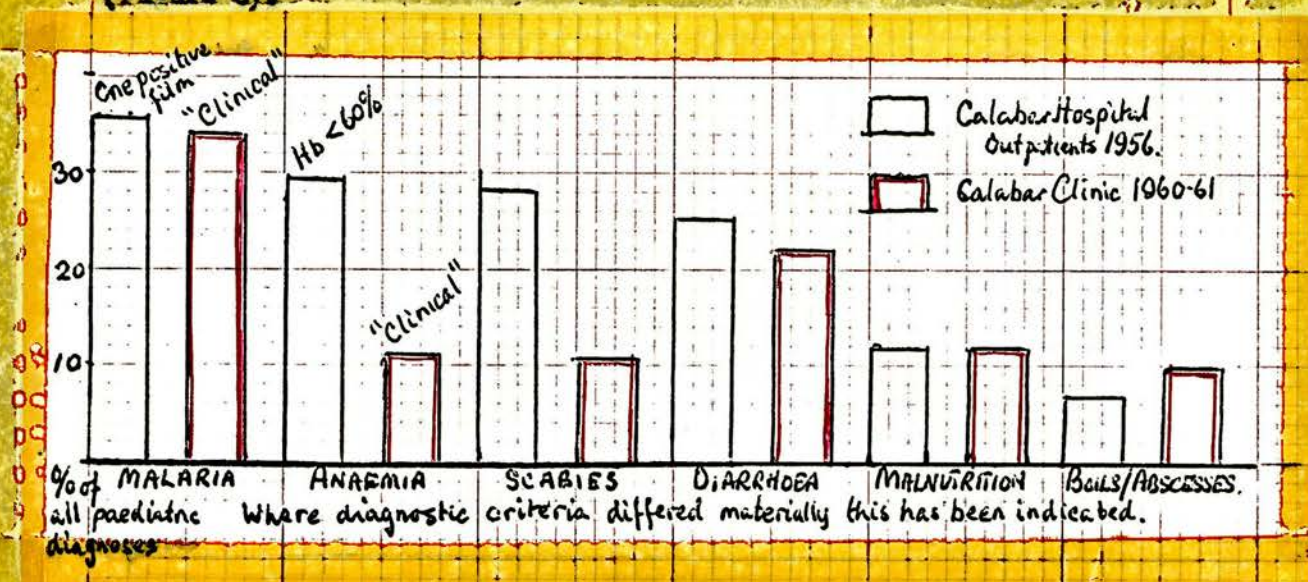 One positive
film
"Clinical"
Hb <60%
"Clinical"
Calabar Hospital
Outpatients 1956.
Calabar Clinic 1960-61
30
20
10
% of MALARIA ANAEMIA SCABIES DIARRHOEA MALNUTRITION BOILS/ABSCESSES.
all paediatric Where diagnostic criteria differed materially this has been indicated.
diagnoses